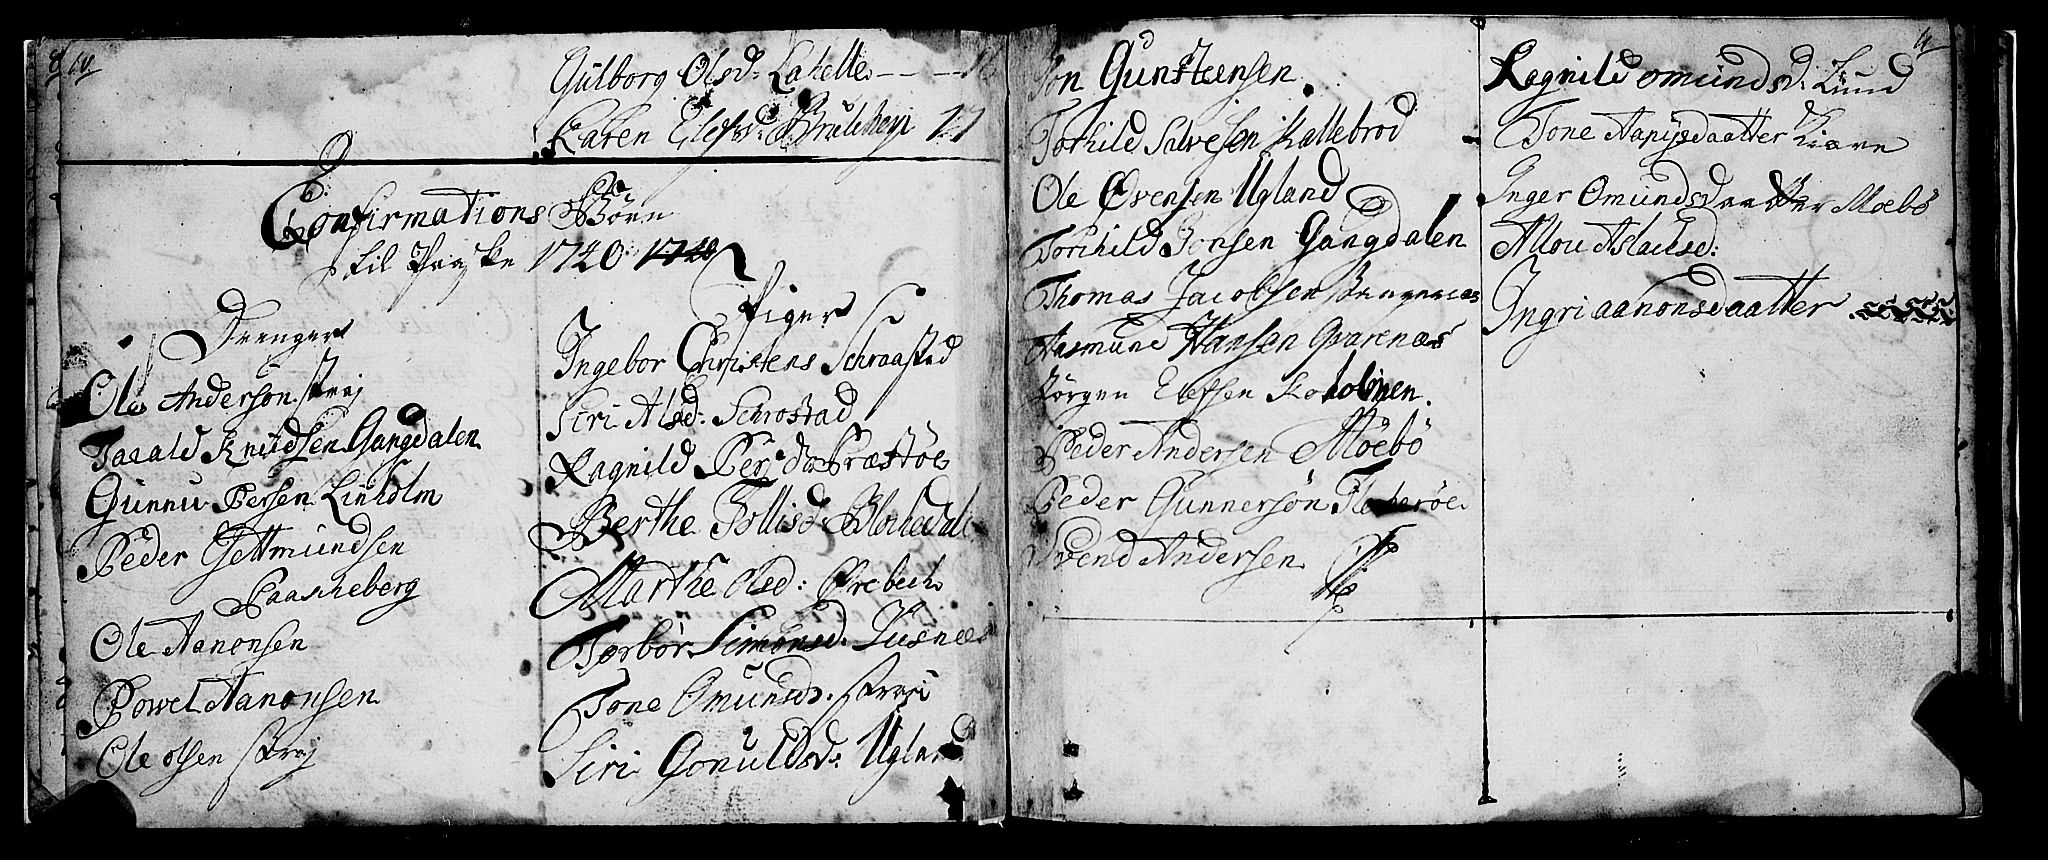 64
Gülborg Olsd: Lakelle - - - 16
Karen Elefsd: Brülihejr 17
Confirmations Börn
til Paaske 1740: 1740
Drenger
Ole Anderson straj
Tarald Knudsen Gangdalen
Gunnu Persen Linholm
Peder Gettmundsen
Paaskeberg
Ole Aanonsen
Powel Aanonsen
Ole olsen straj
Piger
Ingebor Christens Schraastad
Siri Alsd: Schrostad
Ragnild Persd Præstöe
Berthe Tollisd: Blochedal
Marthe olsd: Örebech
Torbör Simonsd: Jusnæs
Tone Omundsd: straj
Siri Gonuldsd: Ugland
Jon Gunsteensen
Torkild Salvesen Kallebrod
Ole Evensen Ugland
Torchild Jonsen Gangdalen
Thomas Jacobsen
Aasmund Hansen Qvarenæs
Jörgen Elefsen
Peder Andersen Möebö
Peder Gunnersön Flekeröe
Svend Andersen
Ragnild omundsd: Lund
Tone daatter Kiære
Inger Omundsdaatter Moebö
Allou Aslachsd:
Ingri aanonsdaatter